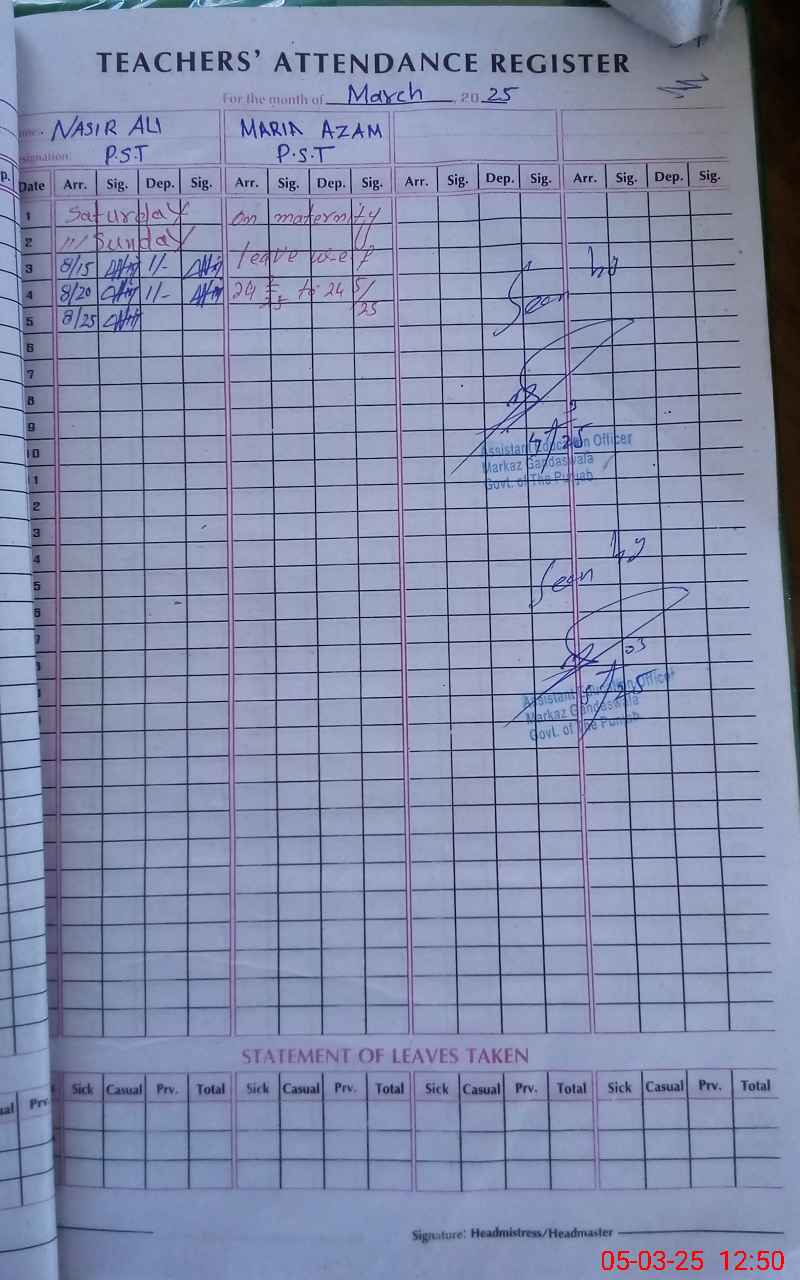 TEACHERS' ATTENDANCE REGISTER
For the month of March, 2025
NASIR ALI MARIA AZAM
P.S.T P.S.T
Date Arr. Sig. Dep. Sig. Arr. Sig. Dep. Sig. Arr. Sig. Dep. Sig. Arr. Sig. Dep. Sig.
1 Saturday on maternity
2 Sunday
3 8/15 1/- leave w-e-f
4 8/20 1/- 24 2/25 to 24 5/25
5 8/25
6
7
8
9
10
1
2
3
4
5
6
7
8
Seen
Assistant Education Officer
Markaz Gandaswala
Govt. of The Punjab
Seen
Assistant Education Officer
Markaz Gandaswala
Govt. of The Punjab
STATEMENT OF LEAVES TAKEN
Sick Casual Prv. Total Sick Casual Prv. Total Sick Casual Prv. Total Sick Casual Prv. Total
Signature: Headmistress/Headmaster
05-03-25 12:50